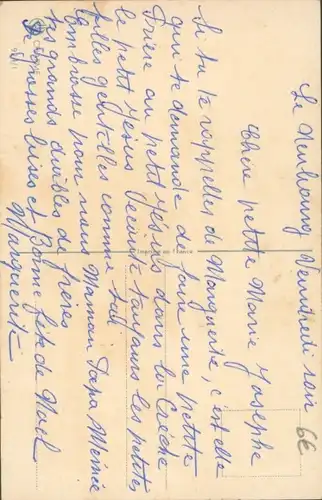 Le Neubourg Vendredi soir
Chère petite Marie Josephe
Si tu te rappelles de Marguerite, c'est elle
qui te demande de faire une petite
Prière au petit Jésus dans la Crèche
le petit Jésus écoute toujours les petites
filles gentilles comme toi
Embrasse pour nous Maman Papa Mémée
tes grands diables de frères
De grosses bises et Bonne fête de Noël
Marguerite
6€